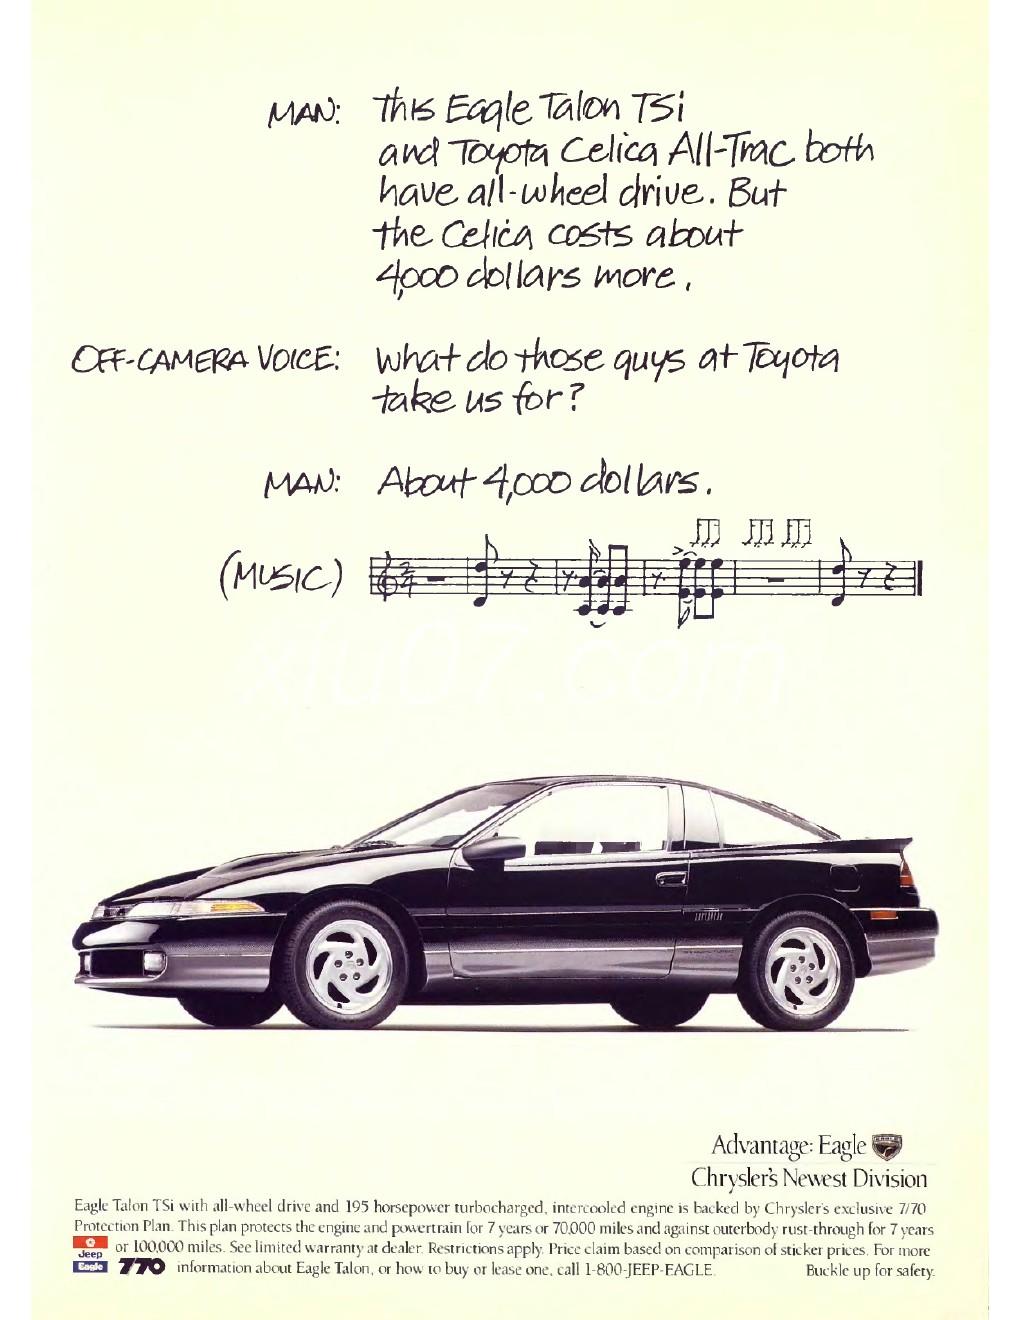 MAN: This Eagle Talon TSi
and Toyota Celica All-Trac both
have all-wheel drive. But
the Celica costs about
4,000 dollars more.
OFF-CAMERA VOICE: What do those guys at Toyota
take us for?
MAN: About 4,000 dollars.
(MUSIC)
xiu07.com
Advantage: Eagle
Chrysler's Newest Division
Eagle Talon TSi with all-wheel drive and 195 horsepower turbocharged, intercooled engine is backed by Chrysler's exclusive 7/70
Protection Plan. This plan protects the engine and powertrain for 7 years or 70,000 miles and against outerbody rust-through for 7 years
or 100,000 miles. See limited warranty at dealer. Restrictions apply. Price claim based on comparison of sticker prices. For more
information about Eagle Talon, or how to buy or lease one, call 1-800-JEEP-EAGLE. Buckle up for safety.
Jeep
Eagle
770